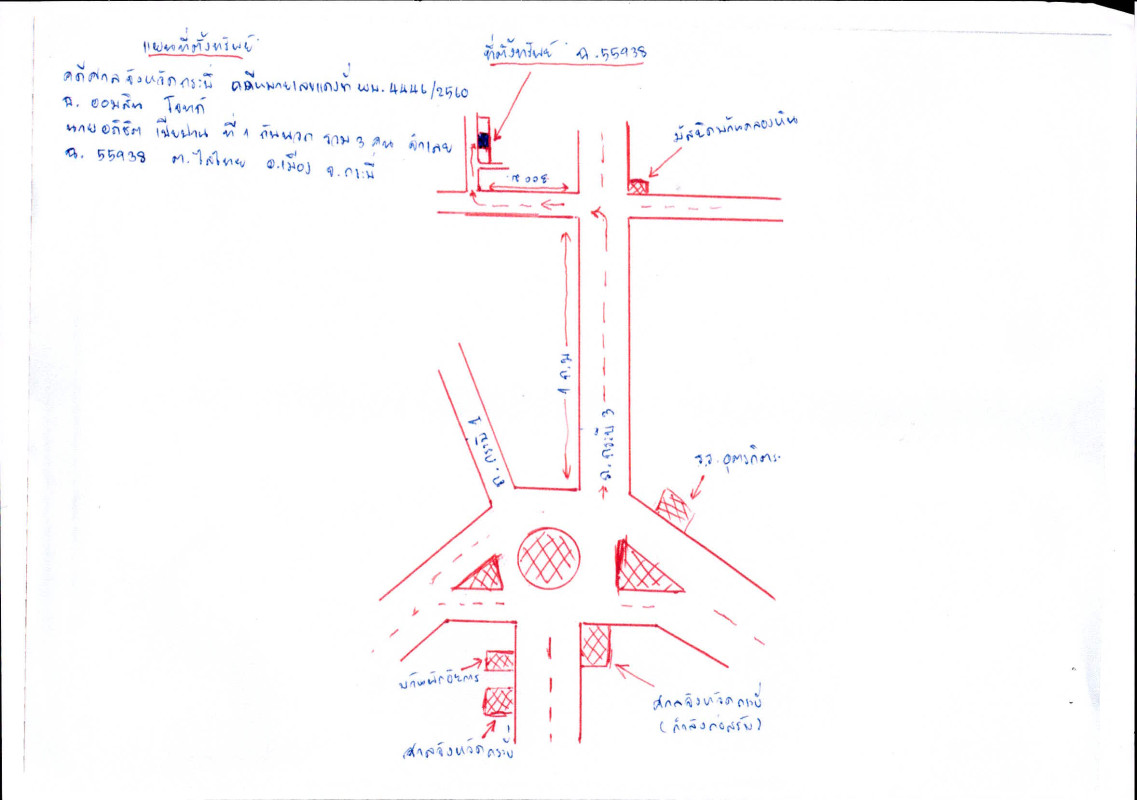 แผนที่ตั้งทรัพย์
คดีศาลจังหวัดกระบี่ คดีหมายเลขแดงที่ ผบ.4446/2560
ธ. ออมสิน โจทก์
นายอภิชิต ที่ 1 กับพวก รวม 3 คน จำเลย
ฉ. 55938 ต.ไสไทย อ.เมือง จ.กระบี่
ที่ตั้งทรัพย์ ฉ.55938
มัสยิดบ้านคลองหิน
300 ม.
1 ก.ม
ถ.กระบี่ 3
ร.ร. อุตรกิจ
บ้านพักอัยการ
ศาลจังหวัดกระบี่
(กำลังก่อสร้าง)
ศาลจังหวัดกระบี่